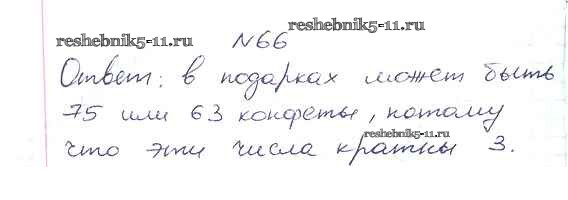 reshebnik5-11.ru
reshebnik5-11.ru
№66
Ответ: в подарках может быть
75 или 63 конфеты, потому
reshebnik5-11.ru
что эти числа кратны 3.